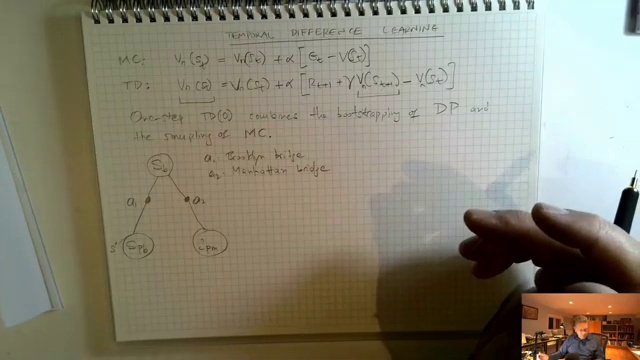 TEMPORAL DIFFERENCE LEARNING
MC: Vπ(St) = Vπ(St) + α [Gt - V(St)]
TD: Vπ(St) = Vπ(St) + α [Rt+1 + γVπ(St+1) - Vπ(St)]
One-step TD(0) combines the bootstrapping of DP and
the sampling of MC.
Sb
a1 Brooklyn bridge
a2: Manhattan bridge
a1
a2
s'
Spb
Spm